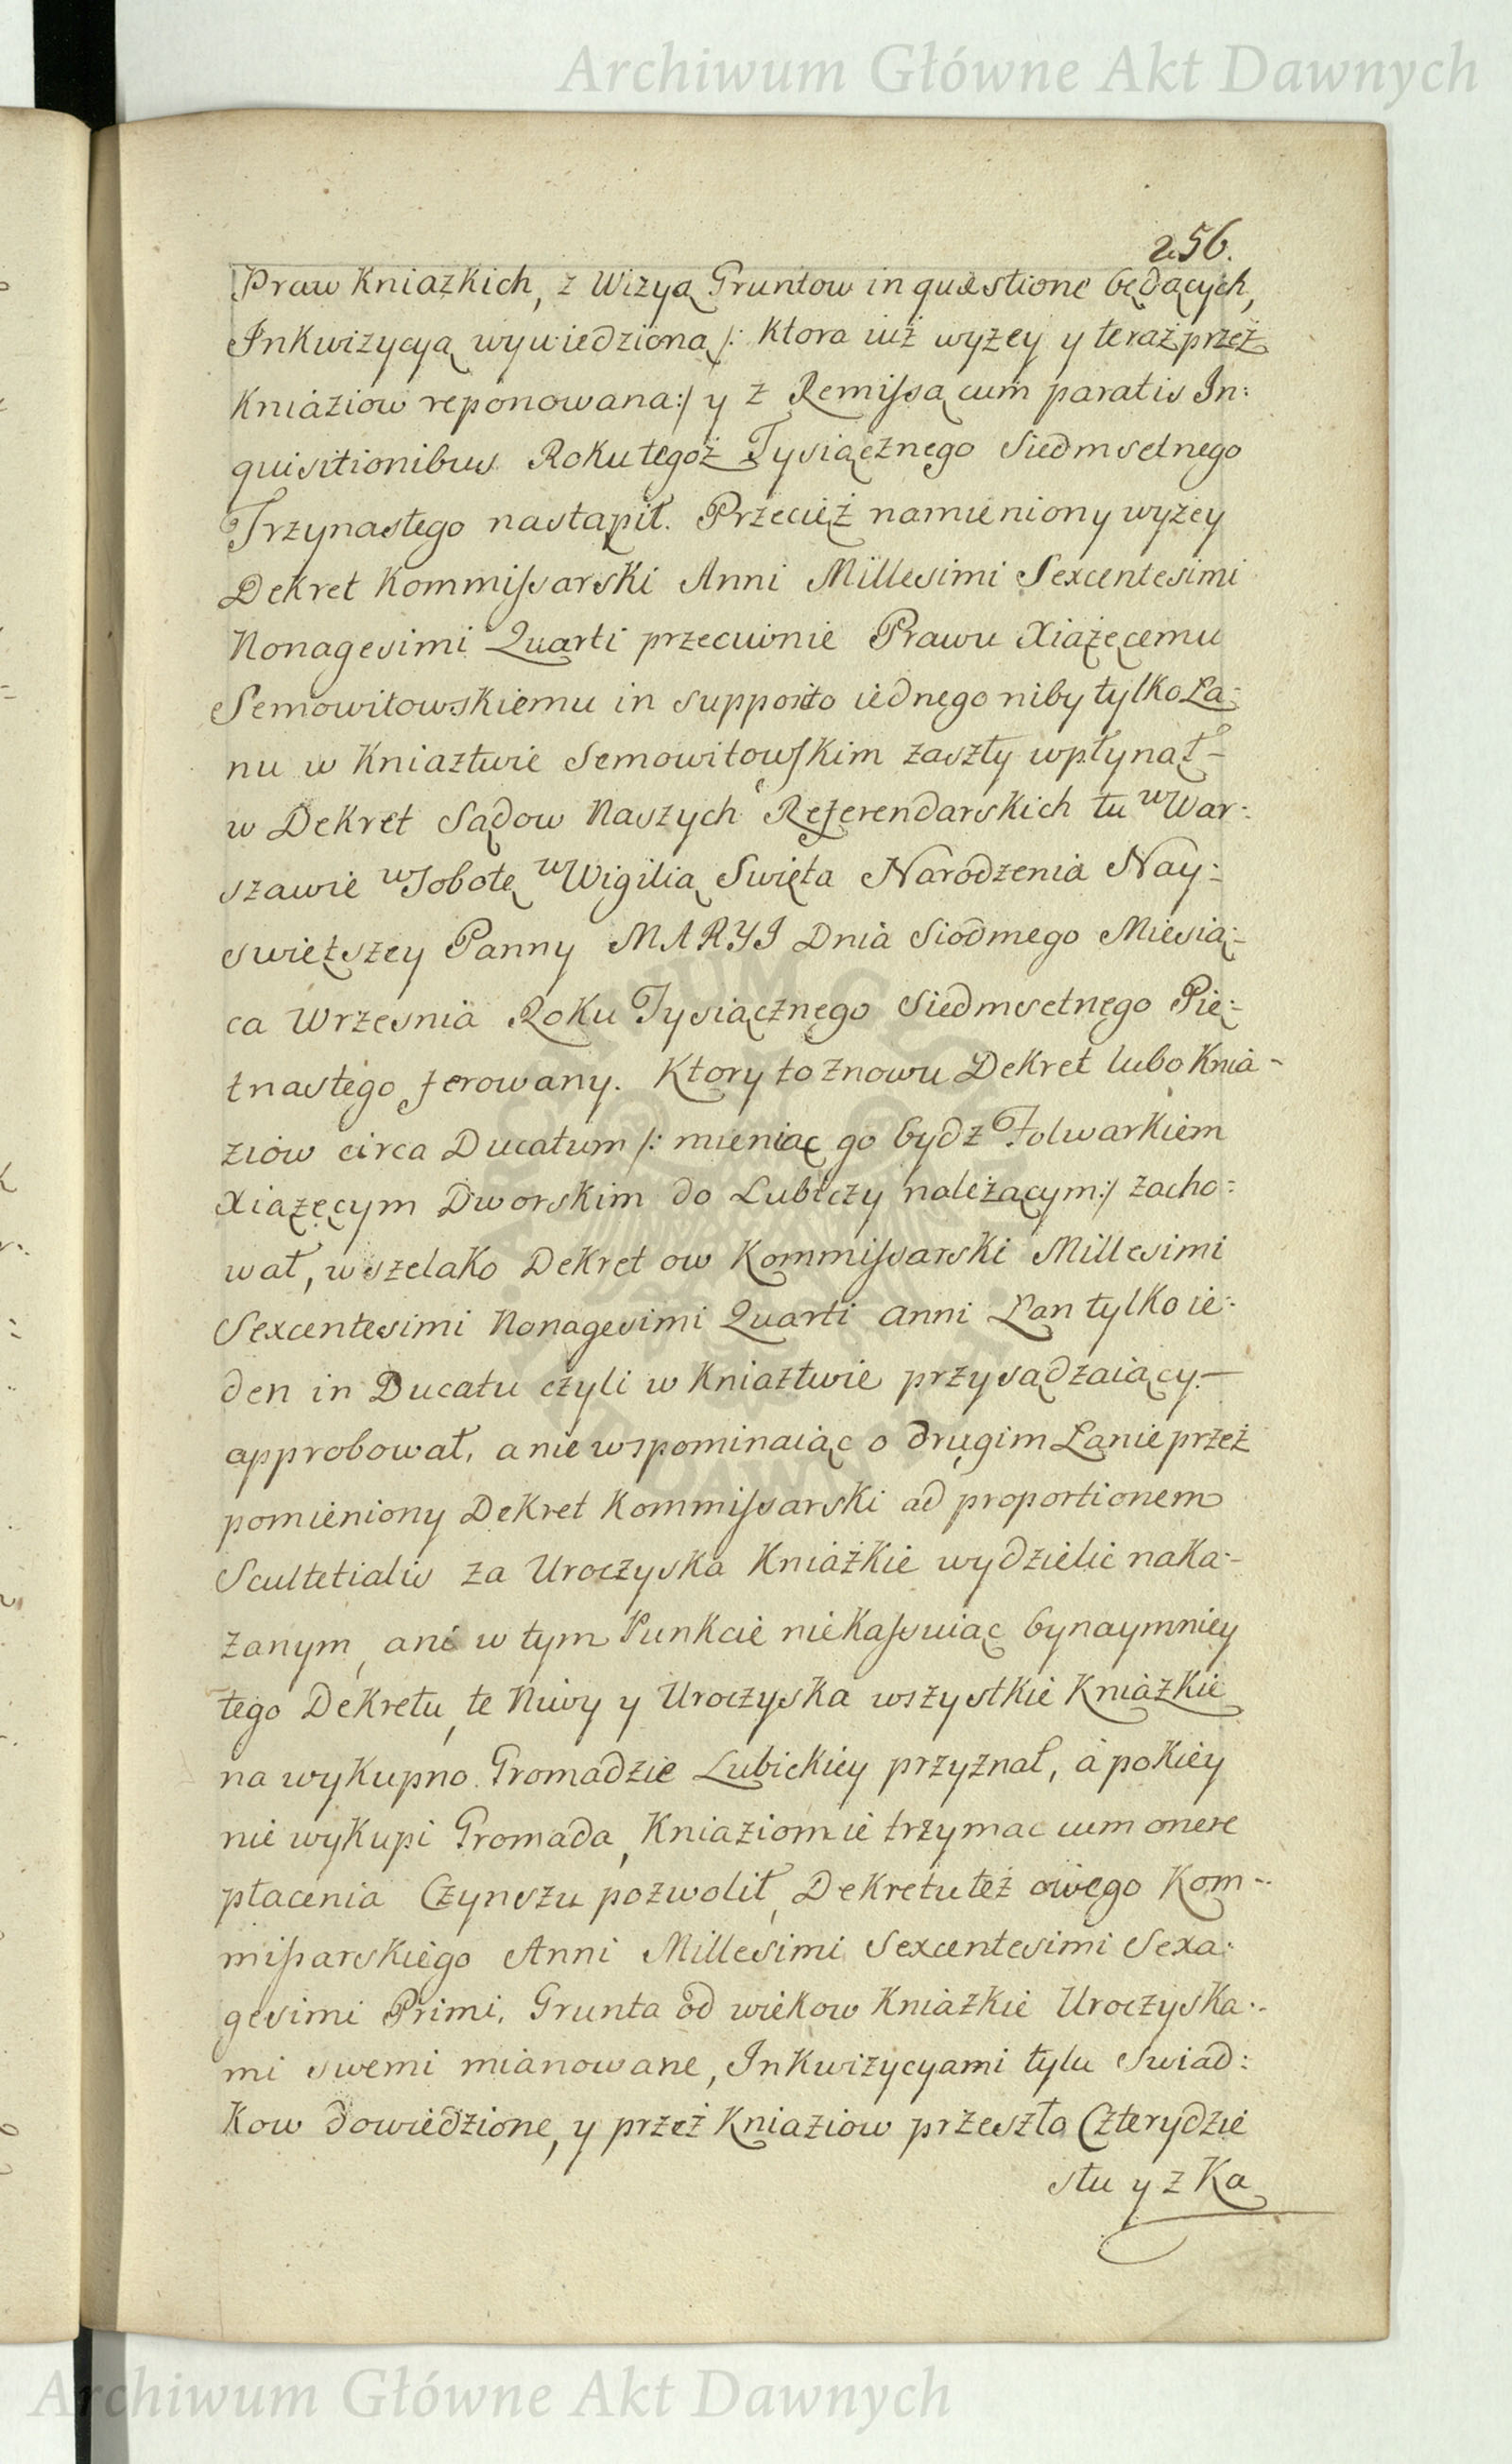 Archiwum Główne Akt Dawnych
256.
Praw Kniazkich, z Wizyą Gruntow in quæstione będących,
Inkwizycyą wywiedziona /: ktora iuż wyzey y teraz przez
Kniaziow reponowana :/ y z Remissą cum paratis In:
quisitionibus Roku tegoż Tysiącznego Siedmsetnego
Trzynastego nastąpił. Przecież namieniony wyzey
Dekret Kommissarski Anni Millesimi Sexcentesimi
Nonagesimi Quarti przeciwnie Prawu Xiążęcemu
Semowitowskiemu in supposito iednego niby tylko Ła:
nu w Kniaztwie Semowitowskim zaszły wpłynął
w Dekret Sądow Naszych Referendarskich tu w War:
szawie w Sobotę w Wigilią Swięta Narodzenia Nay:
swiętszey Panny MARYI Dnia Siodmego Miesią:
ca Wrzesnia Roku Tysiącznego Siedmsetnego Pię:
tnastego ferowany. Ktory to znowu Dekret lubo Knia-
ziow circa Ducatum /: mieniąc go bydz Folwarkiem
Xiążęcym Dworskim do Lubiczy należącym :/ zacho:
wał, wszelako Dekret ow Kommissarski Millesimi
Sexcentesimi Nonagesimi Quarti anni Łan tylko ie:
den in Ducatu czyli w Kniaztwie przysądzaiący
approbował, a nie wspominaiąc o drugim Łanie przez
pomieniony Dekret Kommissarski ad proportionem
Scultetialis za Uroczyska Kniazkie wydzielic naka:
zanym, ani w tym Punkcie nie kassuiąc bynaymniey
tego Dekretu, te Niwy y Uroczyska wszystkie Kniazkie
na wykupno Gromadzie Lubickiey przyznał, a pokiey
nie wykupi Gromada, Kniaziom ie trzymac cum onere
płacenia Czynszu pozwolił, Dekretu też owego Kom-
missarskiego Anni Millesimi Sexcentesimi Sexa:
gesimi Primi, Grunta od wiekow Kniazkie Uroczyska:
mi swemi mianowane, Inkwizycyami tylu Swiad:
kow dowiedzione, y przez Kniaziow przeszło Czterydzie
stu y z Ka
Archiwum Główne Akt Dawnych